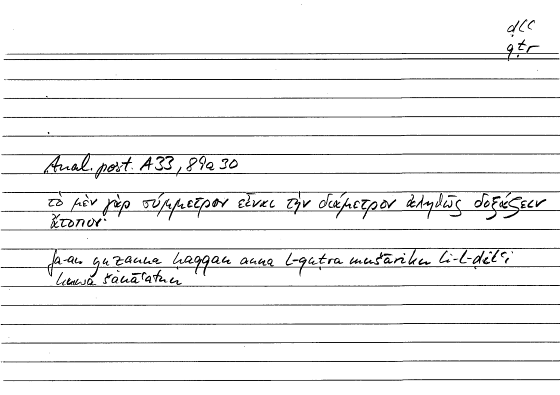 ḍlʿ
qṭr
Anal. post. A33, 89a30
τὸ μὲν γὰρ σύμμετρον εἶναι τὴν διάμετρον ἀληθῶς δοξάζειν
ἄτοπον·
fa-an yuẓanna ḥaqqan anna l-quṭra mušārikun li-l-ḍilʿi
huwa šanāʿatun